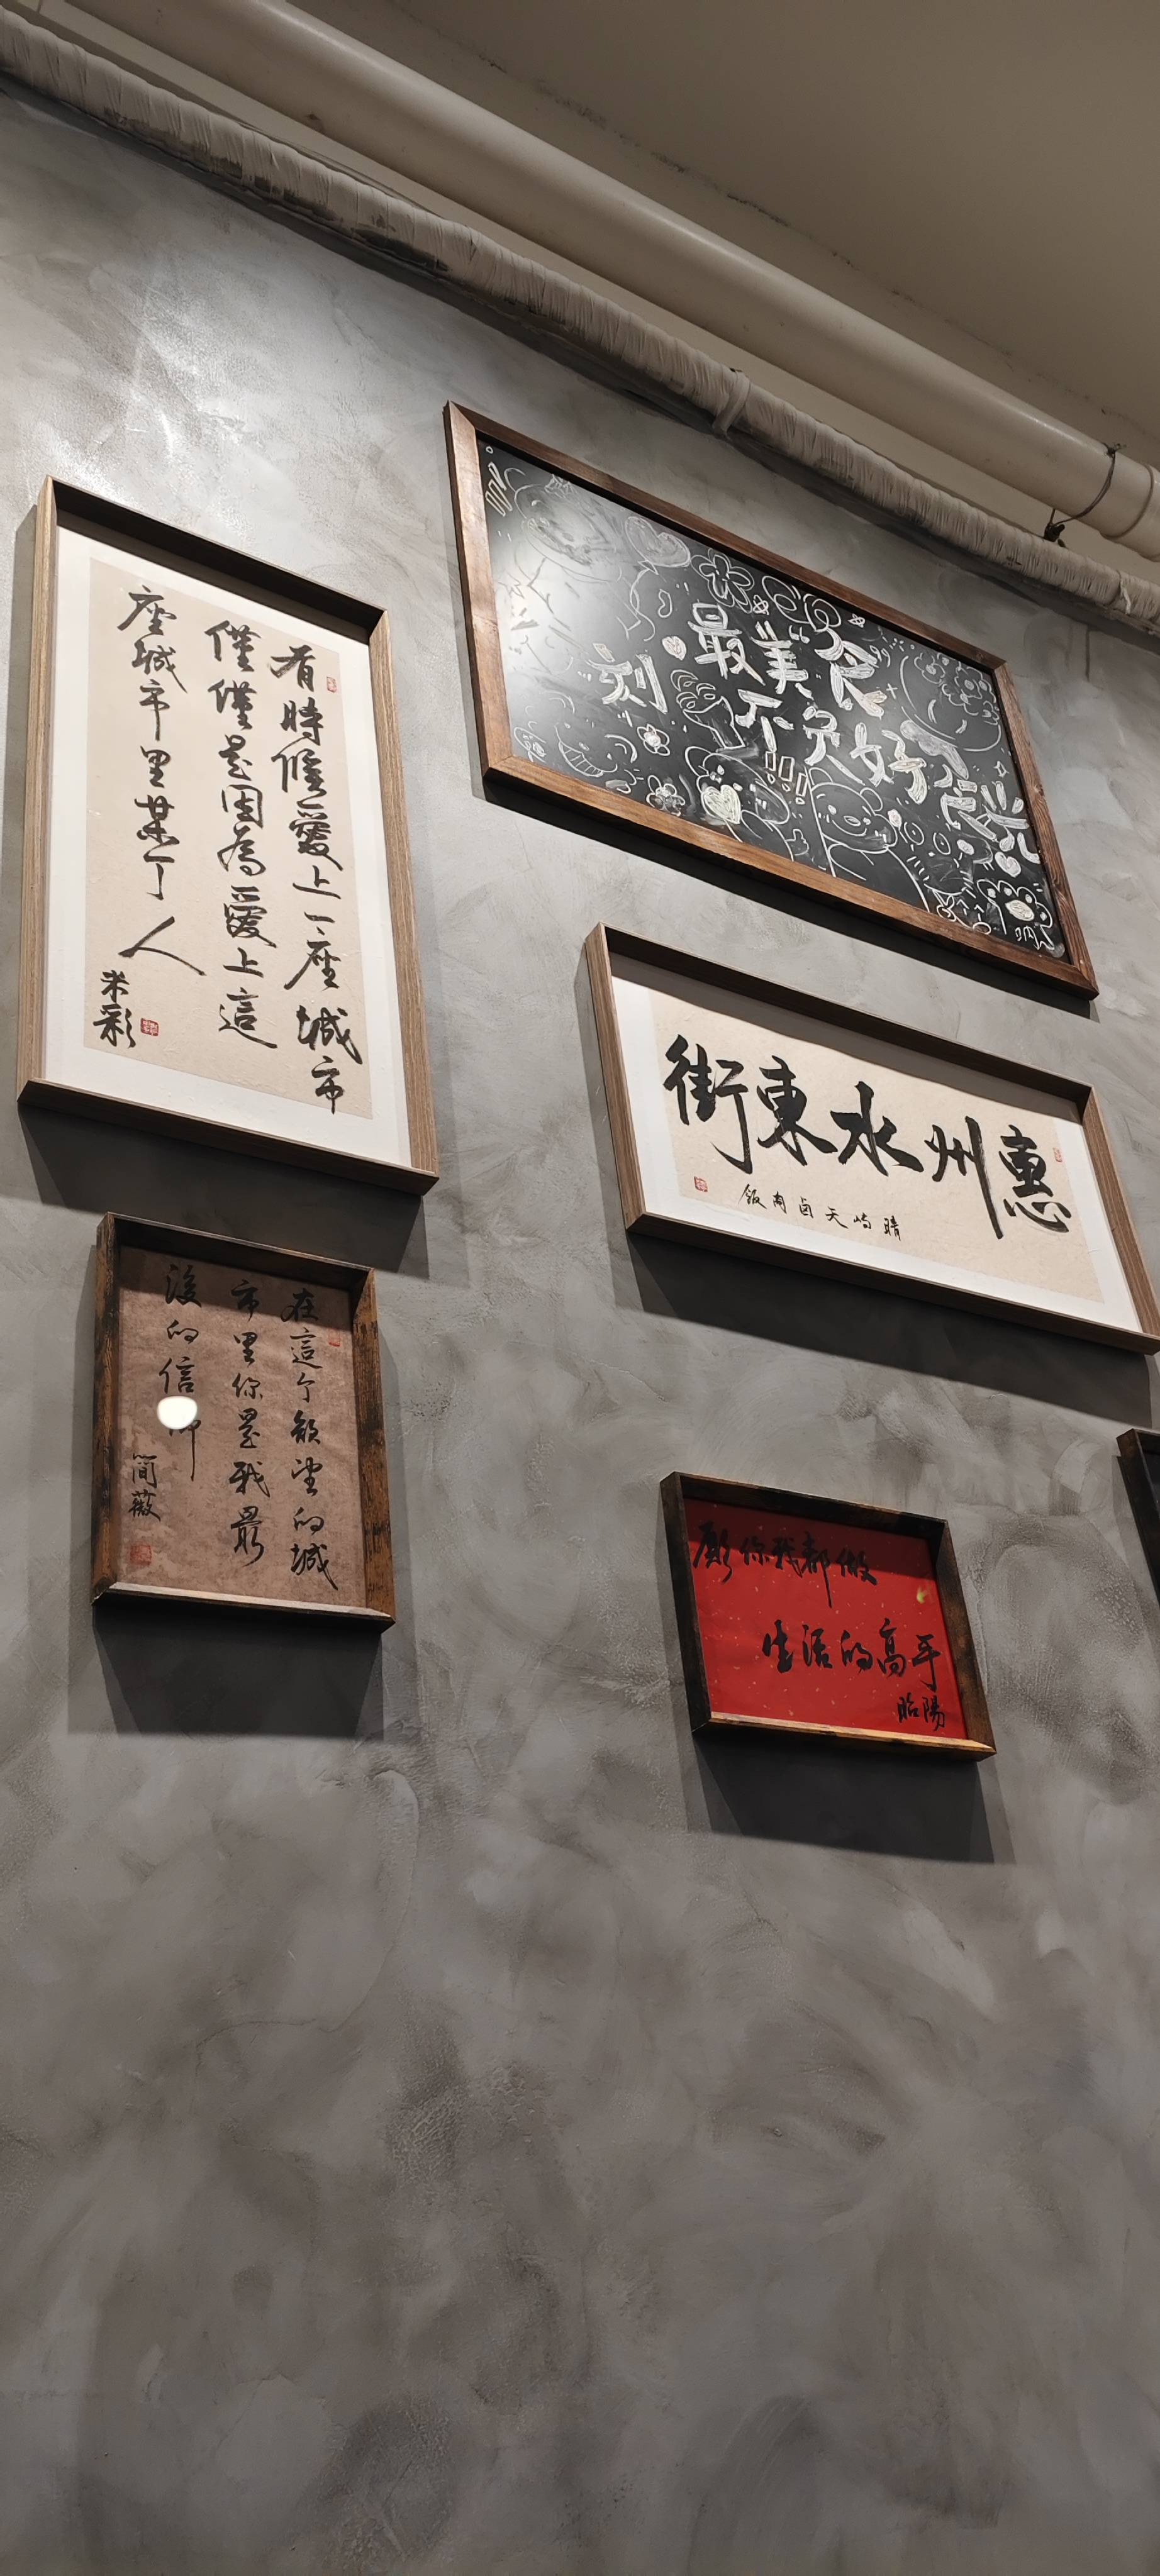 有時候愛上一座城市
僅僅是因為愛上這
座城市里某个人
米彩
刻
最美食
不负好
時光
惠州水東街
晴嶼天鹵肉飯
在這个慾望的城
市里你是我最
後的信仰
簡薇
願你我都做
生活的高手
昭陽